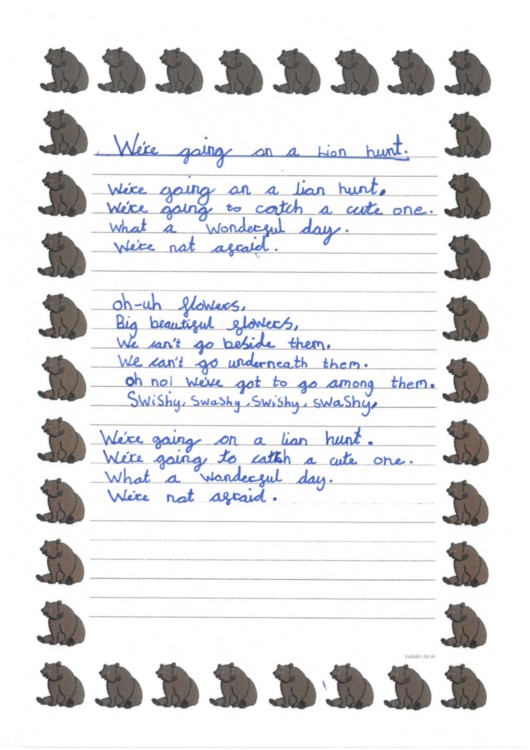 We're going on a Lion hunt.
We're going on a lion hunt.
We're going to catch a cute one.
What a Wonderful day.
We're not afraid.
oh-uh flowers,
Big beautiful flowers,
We can't go beside them.
We can't go underneath them.
oh no! We've got to go among them.
Swishy, Swashy, Swishy, swashy,
We're going on a lion hunt.
We're going to catch a cute one.
What a wonderful day.
We're not afraid.